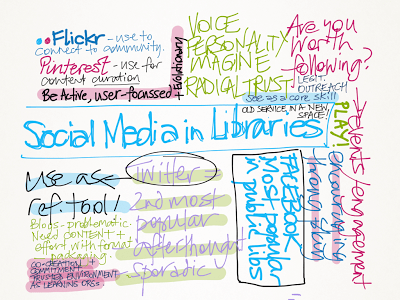 Flickr - use to
connect to community.
Pinterest - use for
content curation
Be Active, user-focussed
+ Evolutionary
VOICE
PERSONALITY
IMAGINE
RADICAL TRUST
Are you
worth
following?
LEGIT.
OUTREACH
see as a core skill
OLD SERVICE IN A NEW
SPACE!
PLAY!
Social Media in Libraries
→ events/engagement
encouraging
thong skin
use as
ref. tool!
Twitter =
2nd most
popular
afterthought
sporadic
FACEBOOK
Most popular
in public libs
Blogs - problematic.
Need CONTENT +
effort with format
packaging.
CO-CREATION +
COMMITMENT
TRUSTED ENVIRONMENT
AS LEARNING ORGS